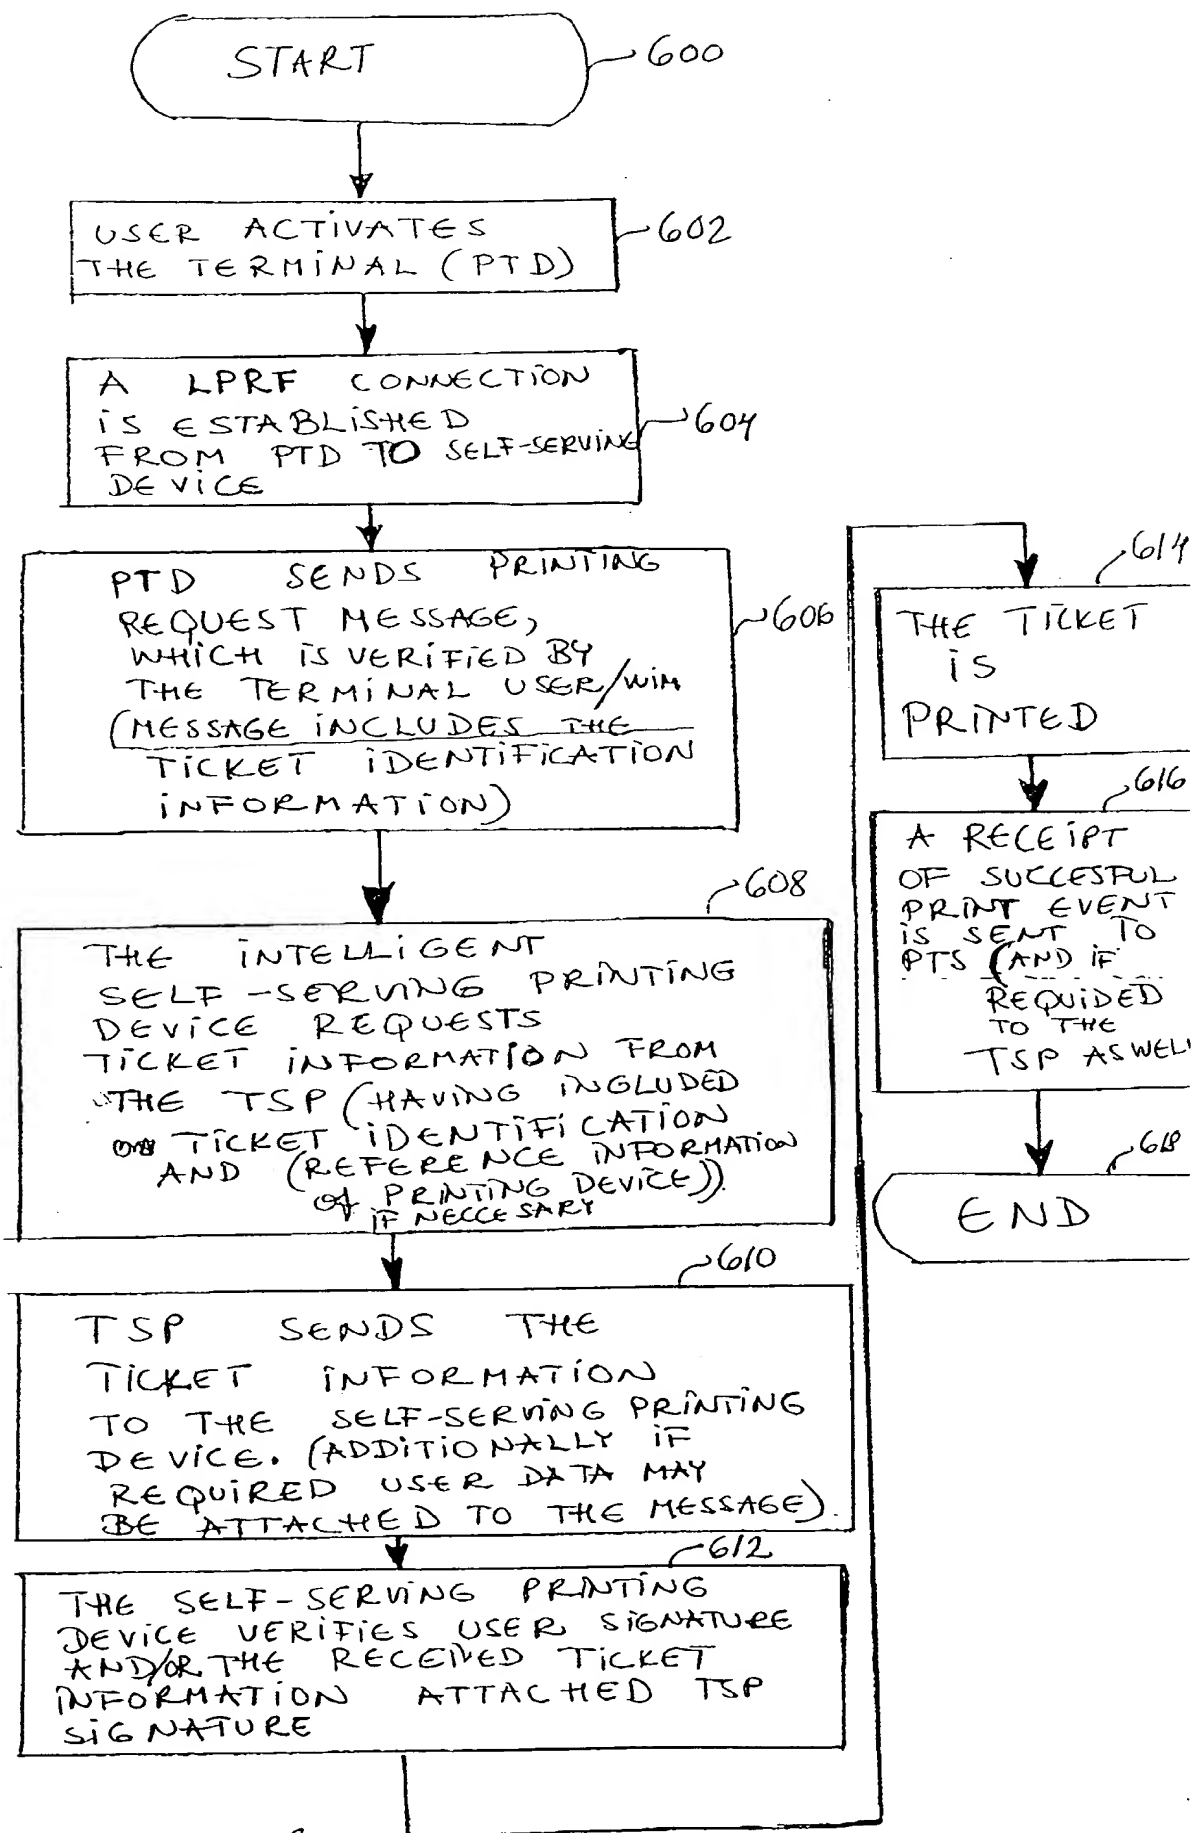 START
600
USER ACTIVATES
THE TERMINAL (PTD)
602
A LPRF CONNECTION
IS ESTABLISHED
FROM PTD TO SELF-SERVING
DEVICE
604
PTD SENDS PRINTING
REQUEST MESSAGE,
WHICH IS VERIFIED BY
THE TERMINAL USER/WIM
(MESSAGE INCLUDES THE
TICKET IDENTIFICATION
INFORMATION)
606
608
THE INTELLIGENT
SELF-SERVING PRINTING
DEVICE REQUESTS
TICKET INFORMATION FROM
THE TSP (HAVING INCLUDED
TICKET IDENTIFICATION
AND (REFERENCE INFORMATION
of PRINTING DEVICE))
IF NECCESARY
610
TSP SENDS THE
TICKET INFORMATION
TO THE SELF-SERVING PRINTING
DEVICE. (ADDITIONALLY IF
REQUIRED USER DATA MAY
BE ATTACHED TO THE MESSAGE).
612
THE SELF-SERVING PRINTING
DEVICE VERIFIES USER SIGNATURE
AND/OR THE RECEIVED TICKET
INFORMATION ATTACHED TSP
SIGNATURE
614
THE TICKET
IS
PRINTED
616
A RECEIPT
OF SUCCESFUL
PRINT EVENT
IS SENT TO
PTS (AND IF
REQUIDED
TO THE
TSP ASWELL
618
END